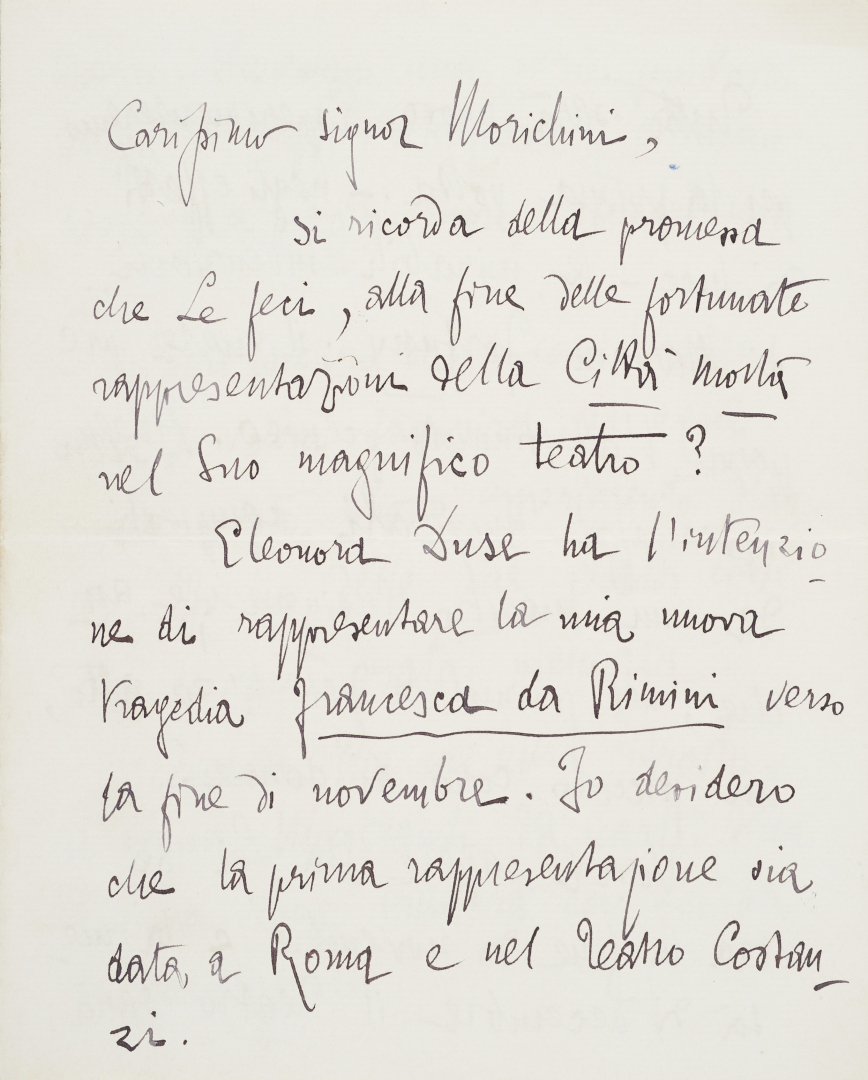 Carissimo signor Morichini,
si ricorda della promessa
che Le feci, alla fine delle fortunate
rappresentazioni della Città morta
nel Suo magnifico teatro?
Eleonora Duse ha l'intenzio
ne di rappresentare la mia nuova
tragedia Francesca da Rimini verso
la fine di novembre. Io desidero
che la prima rappresentazione sia
data, a Roma e nel Teatro Costan
zi.